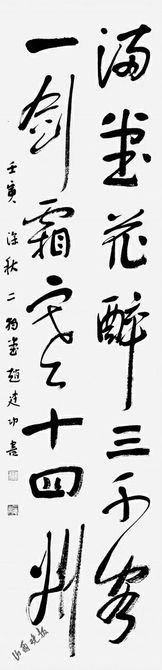 满堂花醉三千客
一剑霜寒十四州
壬寅深秋二狗堂赵建功书
山西晚报